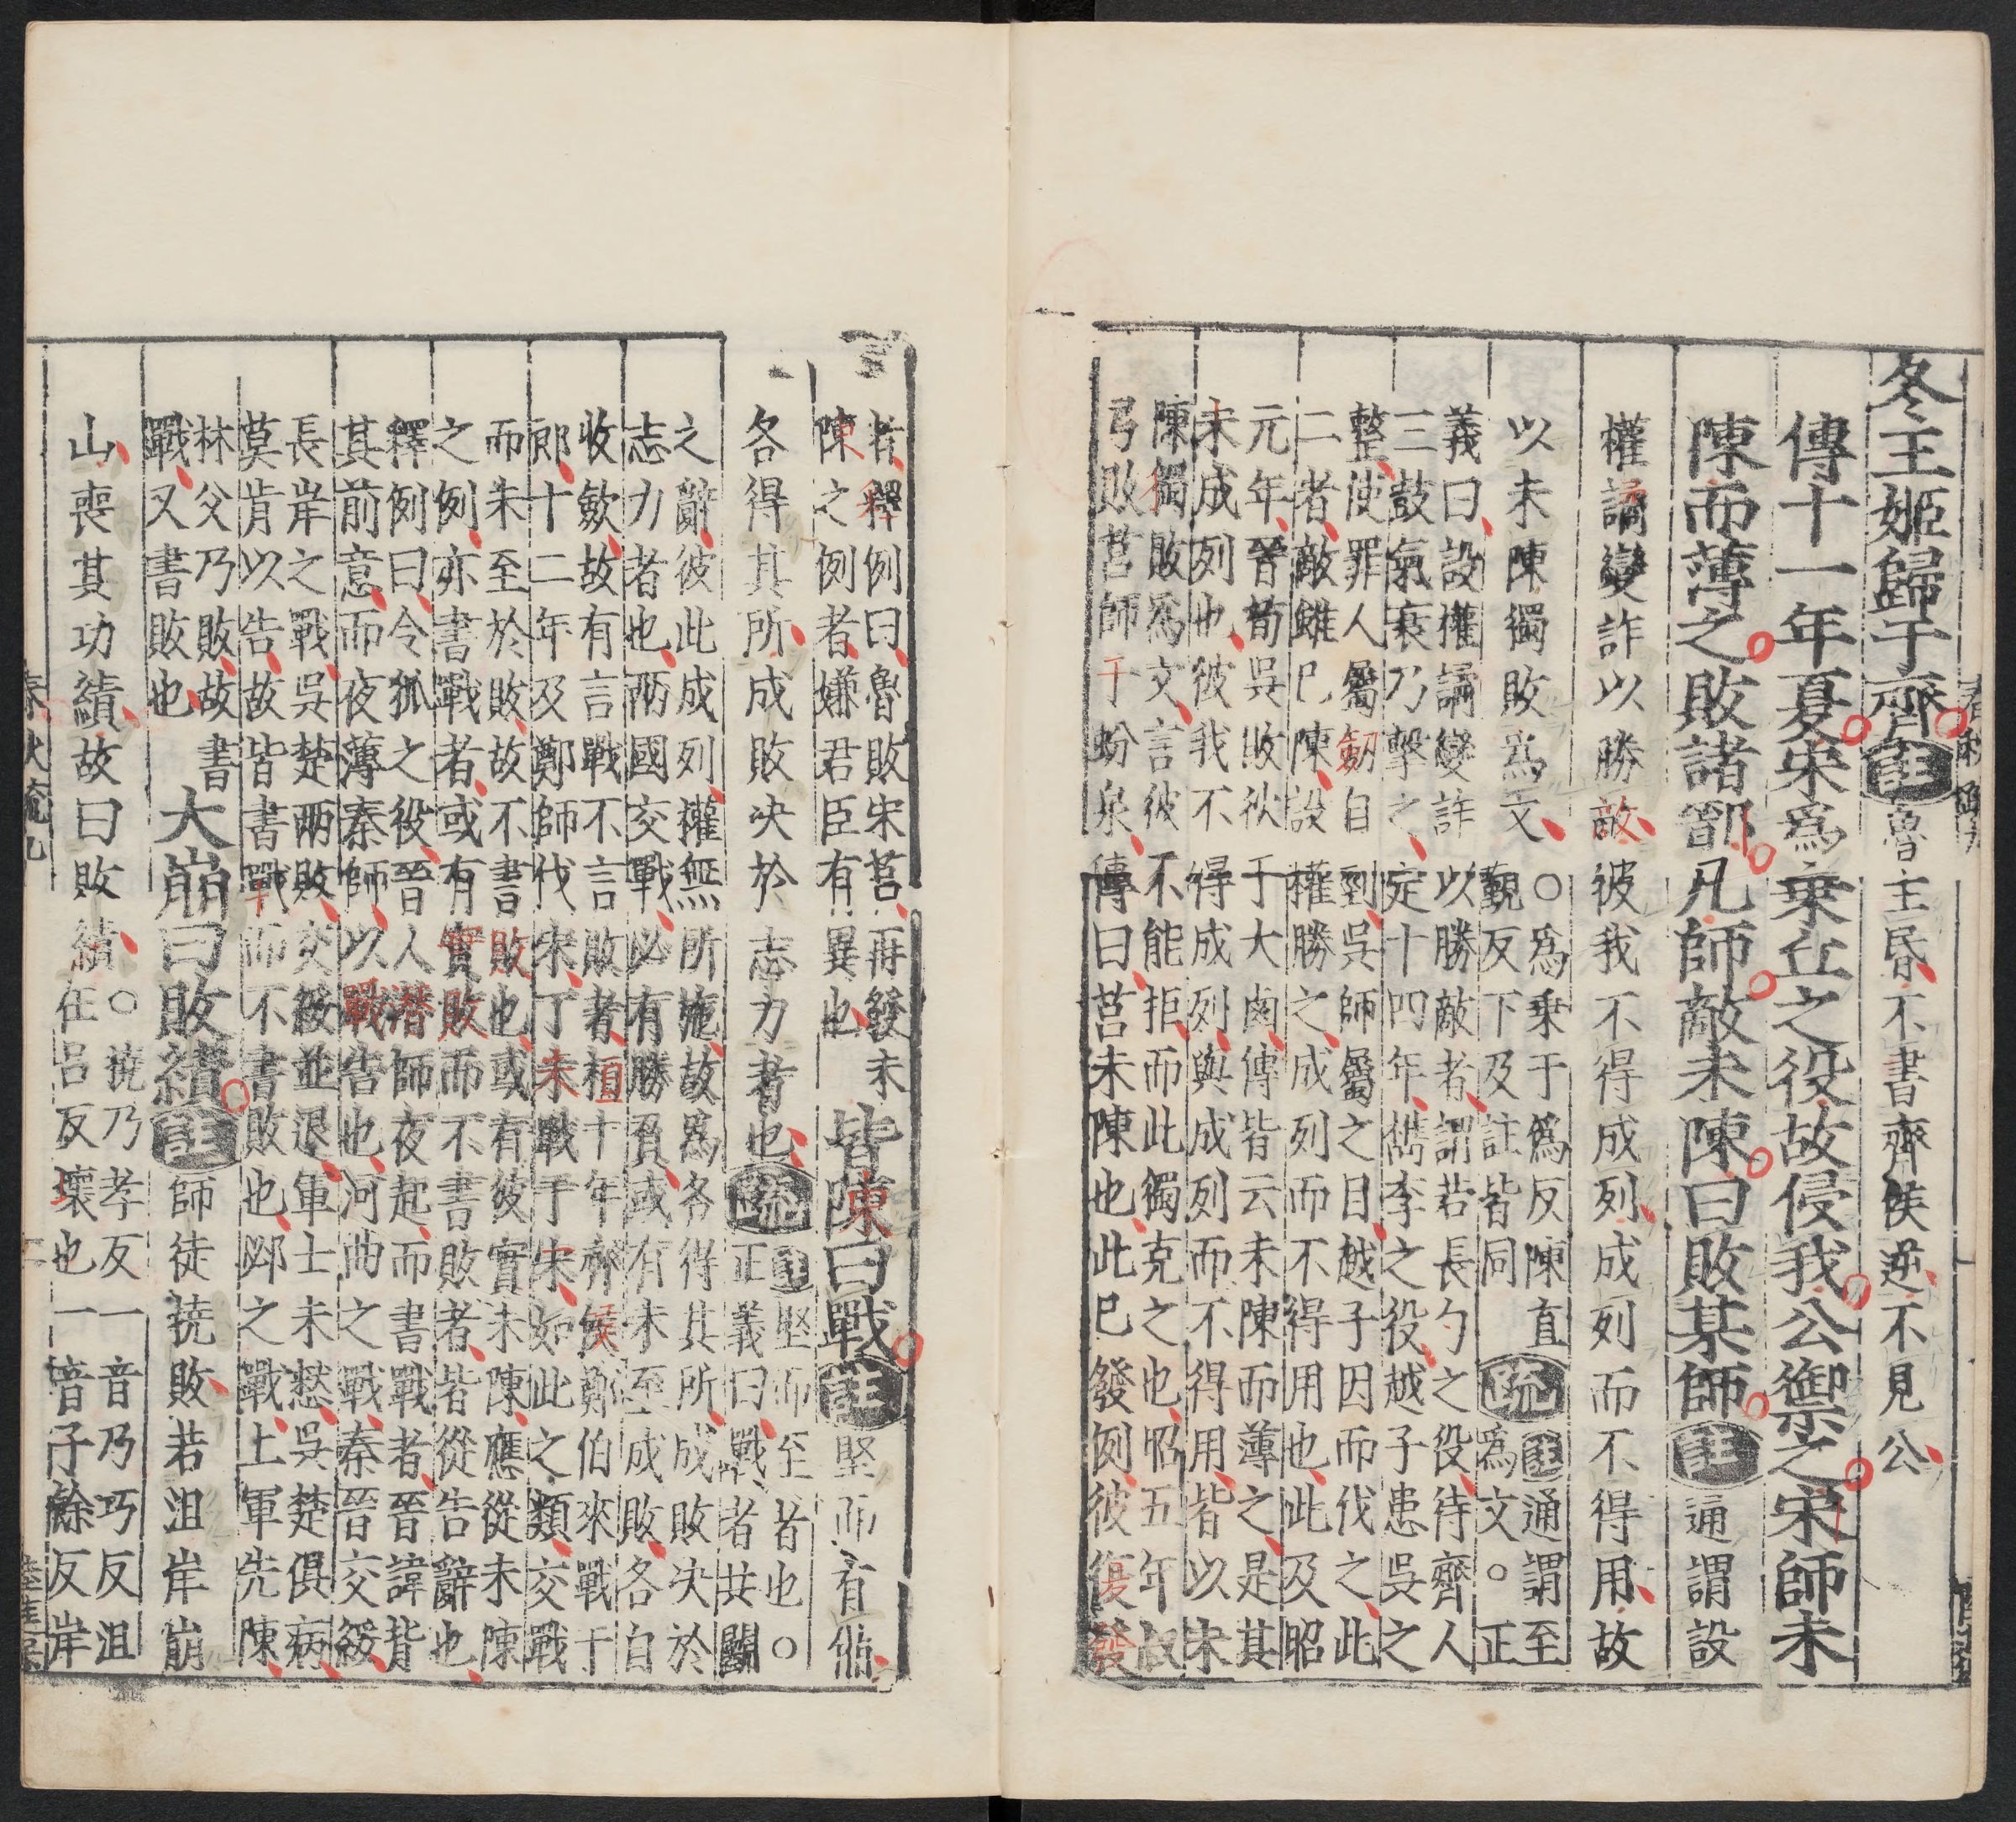 冬王姬歸于齊註魯主昏不書齊侯逆不見公
傳十一年夏宋為乘丘之役故侵我公禦之宋師未
陳而薄之敗諸鄑凡師敵未陳曰敗某師註通謂設
權譎變詐以勝敵彼我不得成列成列而不得用故
以未陳獨敗為文
○為乘于偽反陳直
覲反下及註皆同
疏
註通謂至
為文○正
義曰設權譎變詐以勝敵者謂若長勺之役待齊人
三鼓氣衰乃擊之定十四年檇李之役越子患吳之
整使罪人屬劒自剄吳師屬之目越子因而伐之此
二者敵雖巳陳設權勝之成列而不得用也此及昭
元年晉荀吳敗狄于大鹵傳皆云未陳而薄之是其
未成列也彼我不得成列與成列而不得用皆以未
陳獨敗為文言彼不能拒而此獨克之也昭五年叔
弓敗莒師于蚡泉傳曰莒未陳也此巳發例彼復發
者釋例曰魯敗宋莒再發未
陳之例者嫌君臣有異也
皆陳曰戰註堅而有備
各得其所成敗决於志力者也疏
註堅而至者也○
正義曰戰者共鬭
之辭彼此成列權無所施故為各得其所成敗决於
志力者也兩國交戰必有勝負或有未至成敗各自
收歛故有言戰不言敗者桓十年齊侯鄭伯來戰于
郎十二年及鄭師伐宋丁未戰于宋如此之類交戰
而未至於敗故不書敗也或有彼實未陳應從未陳
之例亦書戰者或有實敗而不書敗者皆從告辭也
釋例曰令狐之役晉人潛師夜起而書戰者晉諱背
其前意而夜薄秦師以戰告也河曲之戰秦晉交綏
長岸之戰吳楚兩敗交綏並退軍士未憖吳楚俱病
莫肯以告故皆書戰而不書敗也邲之戰上軍先陳
林父乃敗故書
戰又書敗也
大崩曰敗績註師徒撓敗若沮岸崩
山喪其功績故曰敗績
○撓乃孝反一音乃巧反沮
在呂反壞也一音子餘反岸